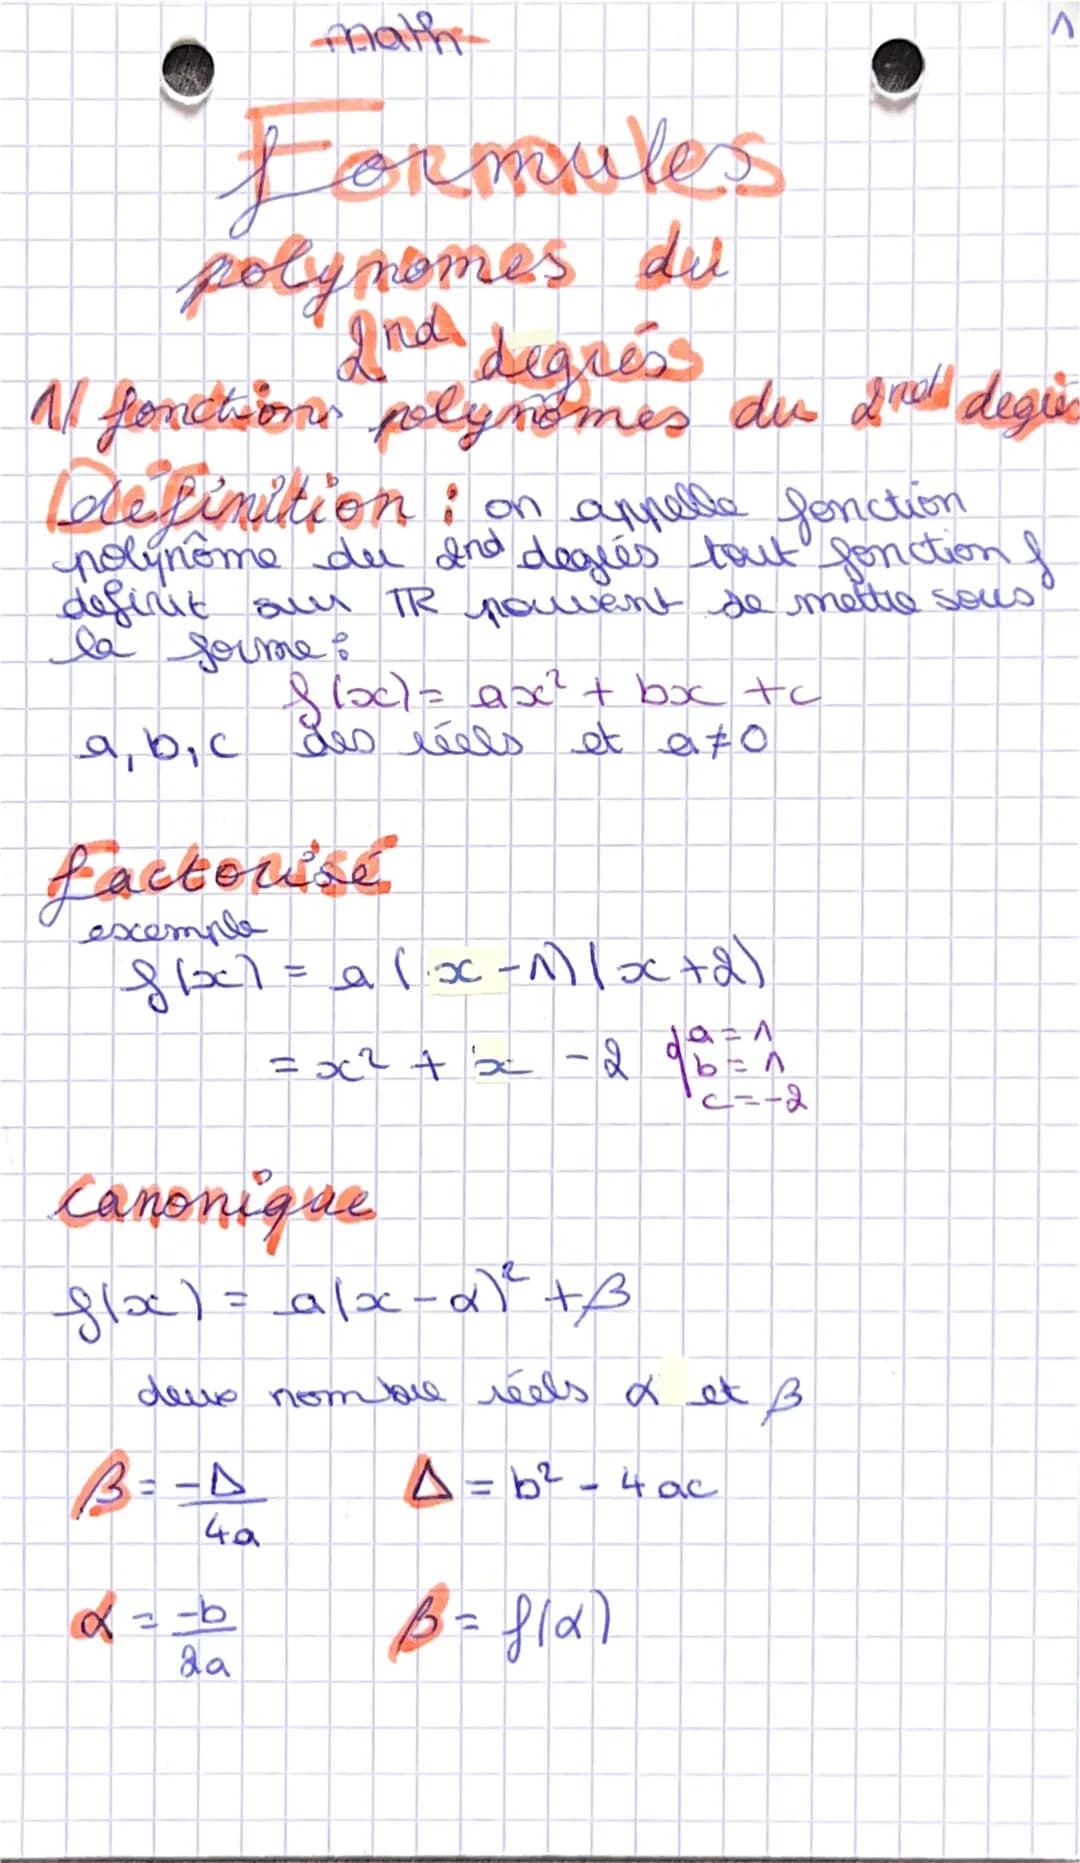 math
1
Formules
polynomes du
2nd degrés
1/ fonctions polynômes du 2nd degrés
Définition : on appelle fonction
polynôme du 2nd degrés tout fonction f
definit sur IR pouvant se mettre sous
la forme :
f(x) = ax² + bx + c
a, b, c des réels et a ≠ 0
factorisé
exemple
f(x) = a (x - 1) (x + 2)
= x² + x - 2 a = 1
b = 1
c = -2
canonique
f(x) = a(x - α)² + β
deux nombre réels α et β
β = -Δ/4a Δ = b² - 4ac
α = -b/2a β = f(α)